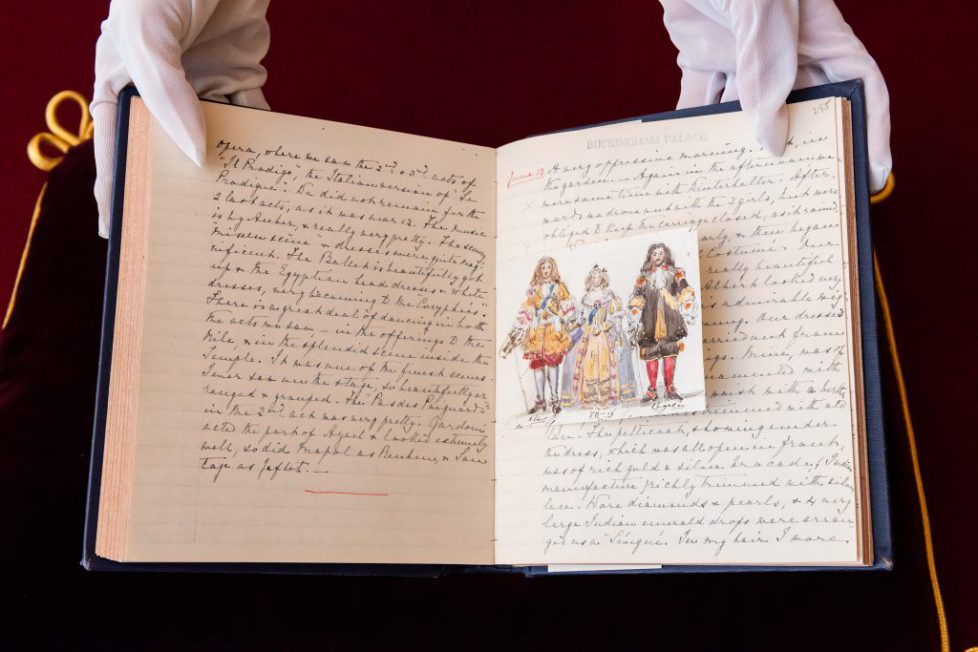 opera, where we saw the 2nd & 3rd acts of
"Il Prodigo", the Italian version of "Le
Prodigue". We did not remain for the
2 last acts, as it was near 12. The music
is by Auber, & really very pretty. The scenery
"mise en scène" & dresses were quite mag-
nificent. The Ballet is beautifully got
up & the Egyptian head dresses & white
dresses, very becoming to the Coryphées.
There is a great deal of dancing in both
the acts we saw, – in the offerings to the
Nile, & in the splendid scene inside the
Temple. It was one of the finest scenes
I ever saw on the stage, so beautifully ar-
ranged & grouped. The "Pas des Poignards"
in the 2nd act was very pretty. Gardoni
acted the part of Azael & looked extremely
well, so did as Reuben, & Son
tag as Jeftele. —
295
BUCKINGHAM PALACE
June 13 A very oppressive morning. in
the garden. — Again in the afternoon we
were some time with Winterhalter. After-
wards we drove out with the 3 girls, but were
obliged to keep the carriage closed, as it rained
early, & then began
Costumé".
really beautiful
Albert looked very
admirable wig
Our dresses
Mine, was of
ornamented with
waist with a
trimmed with old
lace. The petticoat, showing under
the dress, which was all open in front,
was of rich gold & silver brocade, (Indian
manufacture) richly trimmed with silver
lace. Wore diamonds & pearls, & 4 very
large Indian emerald drops were arran
ged as a In my hair I wore